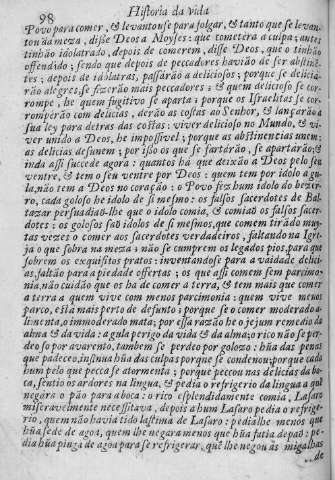 98
Historia da vida
Povo para comer, & levantouse para folgar, & tanto que se levan-
tou da meza, disse Deos a Moyses: que cometera a culpa; antes
tinhão idolatrado, depois de comerem, disse Deos, que o tinhão
offendido; sendo que depois de peccadores havião de ser abstinê-
tes; depois de idolatras, passárão a deliciosos; porque se deliciá-
rão alegres, se fizerão mais peccadores: & quem delicioso se cor-
rompe, he quem fugitivo se aparta; porque os Israelitas se cor-
romperão com delicias, derão as costas ao Senhor, & lançarão a
sua ley para detras das costas: viver delicioso no Mundo, & vi-
ver unido a Deos, he impossivel; porque as abstinencias unem;
as delicias desunem; por isso os que se fartárão, se apartárão; &
inda assi succede agora: quantos há que deixão a Deos pelo seu
ventre, & tem o seu ventre por Deos: quem tem por idolo a gu-
la, não tem a Deos no coração: o Povo fez hum idolo do bezer-
ro, cada goloso he idolo de si mesmo: os falsos sacerdotes de Bal-
tazar persuadião-lhe que o idolo comia, & comião os falsos sacer-
dotes: os golosos são idolos de si mesmos, que comem tirado mui-
tas vezes o comer aos sacerdotes verdadeiros, faltando na Igre-
ja o que sobra na meza: não se cumprem os legados pios, para que
sobrem os exquisitos pratos: inventandose para a vaidade delici-
as, faltão para a piedade offertas; os que assi comem sem parcimo-
nia, não cuidão que os ha de comer a terra, & tem mais que comer
a terra a quem vive com menos parcimonia: quem vive menos
parco, está mais perto de defunto; porque se o comer moderado a-
limenta, o immoderado mata; por essa razão he o jejum remedio da
alma & da vida: a gula perigo da vida & da alma; o rico não se per-
deo so por avarento, tambem se perdeo por goloso: hũa das penas
que padeceo, insinua hũa das culpas porque se condenou; porque cada
hum pelo que pecca se atormenta; porque peccou nas delicias da bo-
ca, sentio os ardores na lingua, & pedia o refrigerio da lingua a qual
negara o pão para a boca: o rico esplendidamente comia, Lasaro
miseravelmente necessitava, depois a hum Lasaro pedia o refrige-
rio, quem não havia tido lastima de Lasaro: pedialhe menos que
hũa sede de agoa, quem lhe negara menos que hũa fatia de pão: pe-
dia hũa pinga de agoa para se refrigerar, que lhe negou as migalhas
de